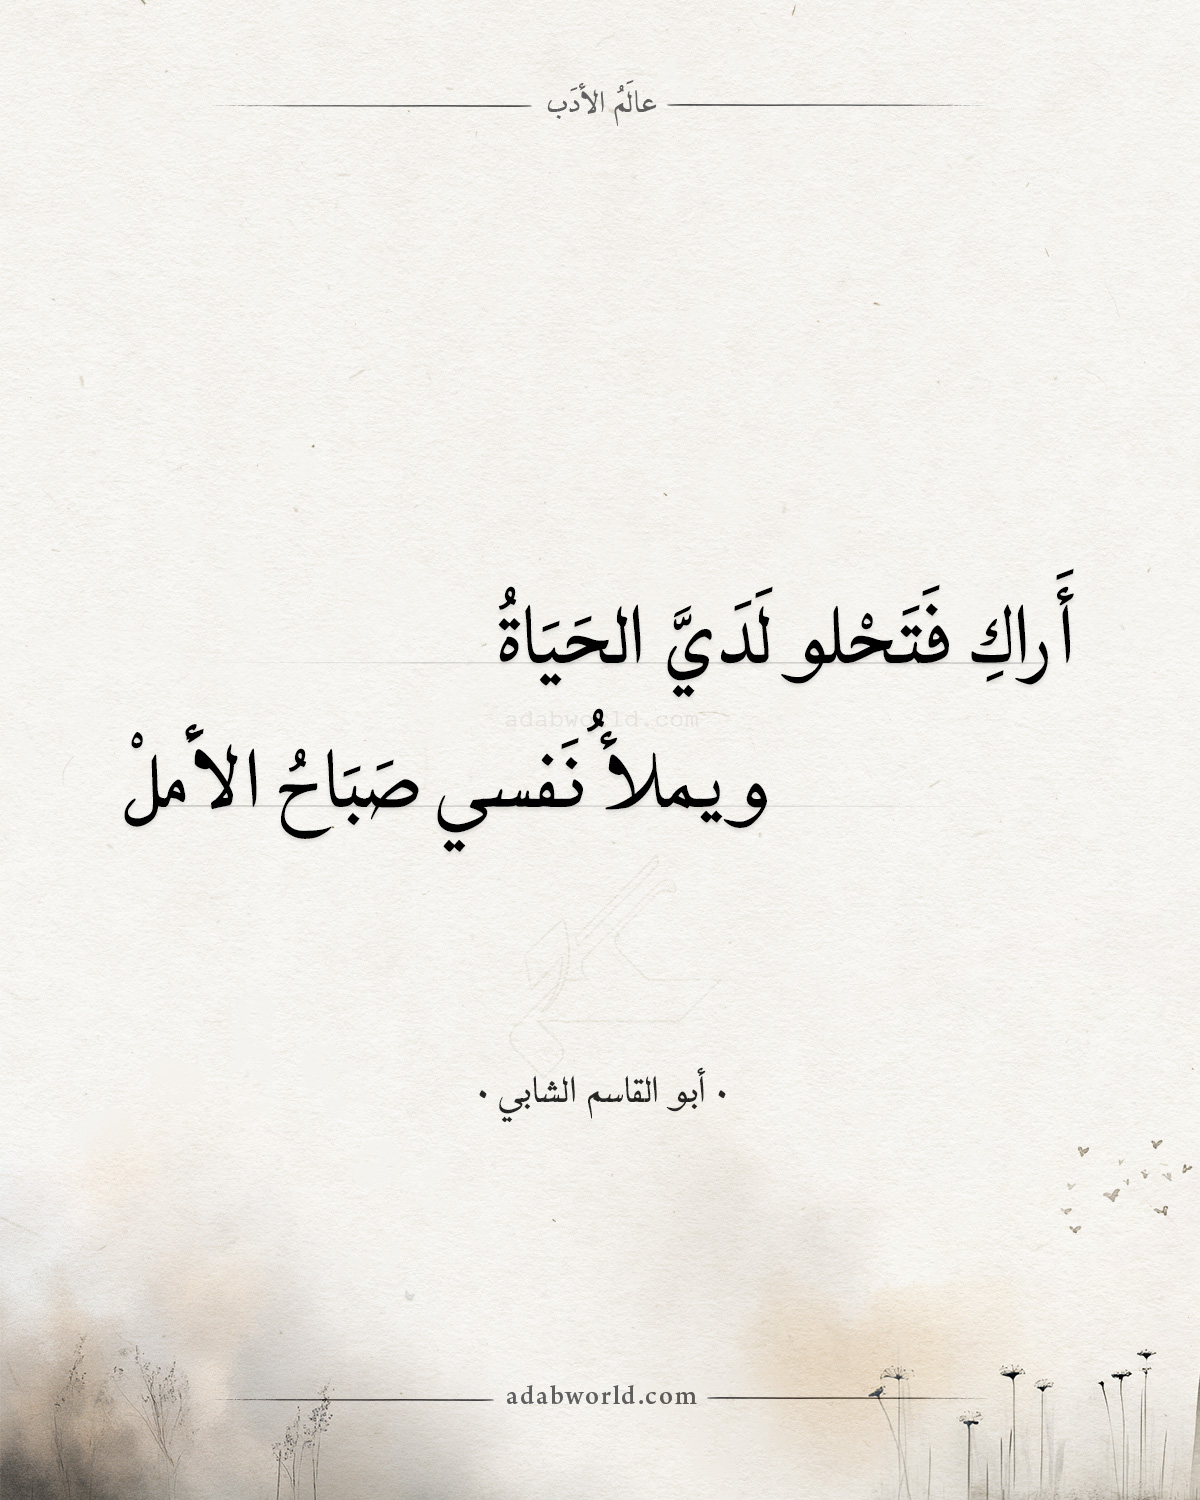 عالَمُ الأدَب
أَراكِ فَتَحْلو لَدَيَّ الحَيَاةُ
adabworld.com
ويملأُ نَفسي صَبَاحُ الأملْ
• أبو القاسم الشابي •
adabworld.com